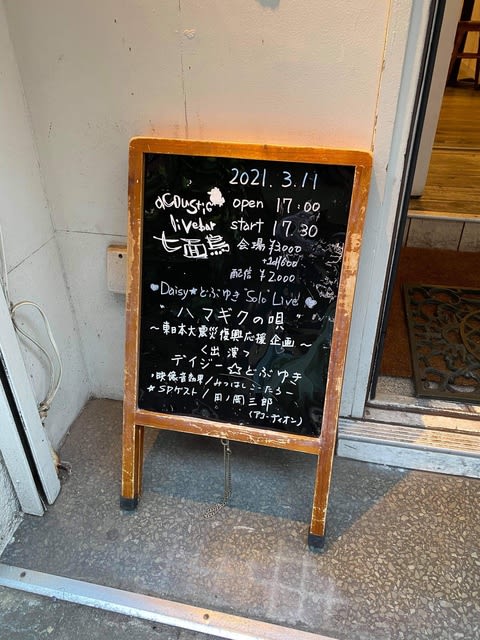 2021. 3. 11
acoustic livebar 七面鳥
open 17:00
start 17.30
会場 ¥3000
+1d¥600
配信 ¥2.000
Daisy★どぶゆき "Solo" Live
"ハマギクの唄"
〜東日本大震災復興応援企画〜
<出演>
デイジー☆どぶゆき
・映像音効/みつはしこーたろー
★SPゲスト/田ノ岡三郎
(アコーディオン)